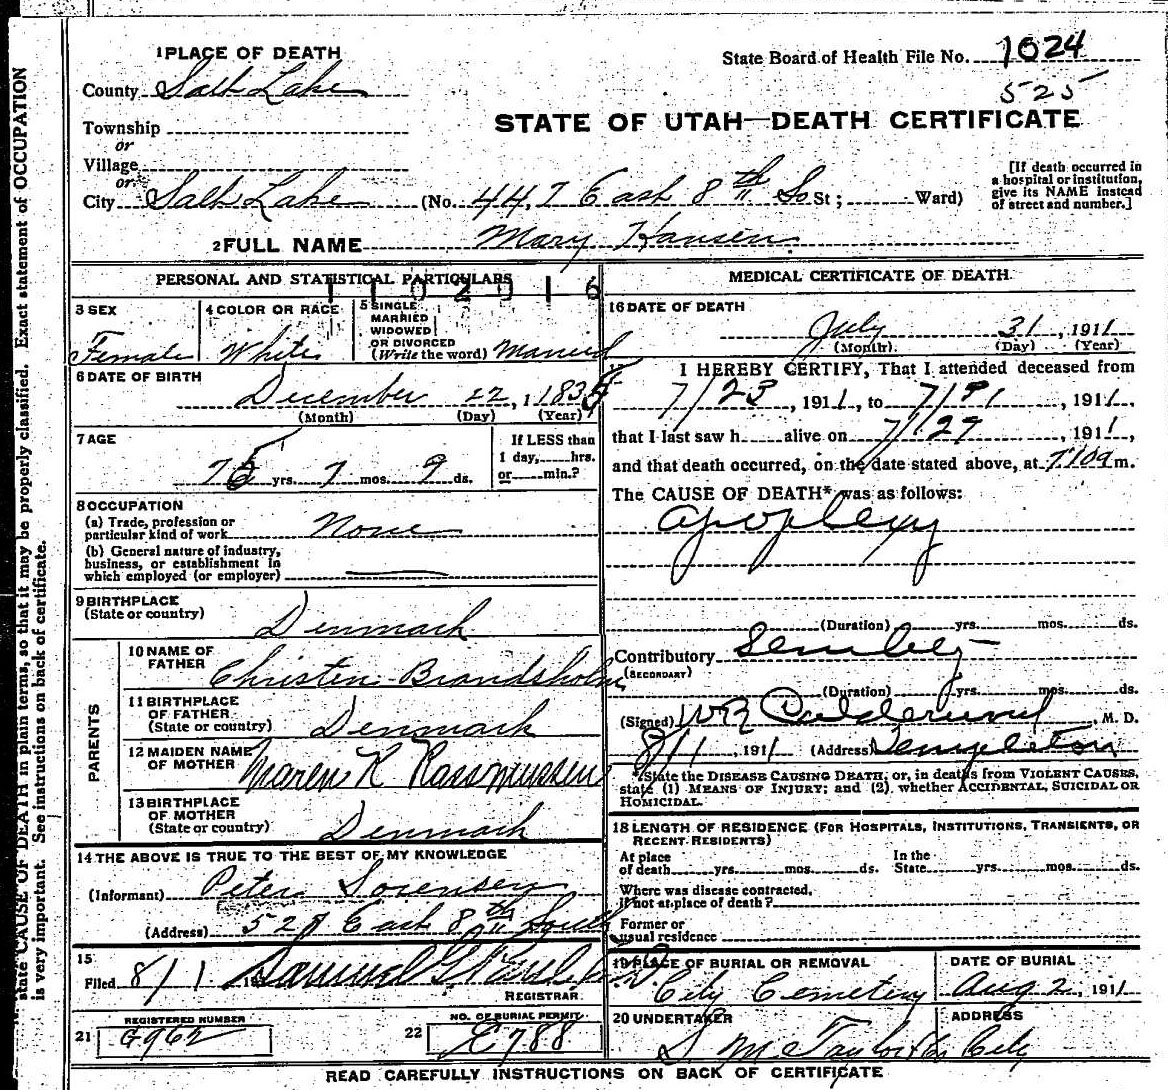 1 PLACE OF DEATH
State Board of Health File No. 1024
525
County Salt Lake
STATE OF UTAH—DEATH CERTIFICATE
Township
or
Village
or
City Salt Lake (No. 447 East 8th So St; Ward)
[If death occurred in
a hospital or institution,
give its NAME instead
of street and number.]
2 FULL NAME Mary Hansen
PERSONAL AND STATISTICAL PARTICULARS
3 SEX
Female
4 COLOR OR RACE
White
5 SINGLE
MARRIED
WIDOWED
OR DIVORCED
(Write the word) Married
6 DATE OF BIRTH
December 22, 1835
(Month) (Day) (Year)
7 AGE
75 yrs. 7 mos. 9 ds.
If LESS than
1 day, hrs.
or min.?
8 OCCUPATION
(a) Trade, profession or
particular kind of work None
(b) General nature of industry,
business, or establishment in
which employed (or employer)
9 BIRTHPLACE
(State or country)
Denmark
PARENTS
10 NAME OF
FATHER
Christen Brandsholm
11 BIRTHPLACE
OF FATHER
(State or country)
Denmark
12 MAIDEN NAME
OF MOTHER
Maren K Rassmussen
13 BIRTHPLACE
OF MOTHER
(State or country)
Denmark
14 THE ABOVE IS TRUE TO THE BEST OF MY KNOWLEDGE
(Informant) Peter Sorensen
(Address) 527 East 8th South
15
Filed 8/1 191 Samuel G.
REGISTRAR
21 REGISTERED NUMBER
G962
22 NO. OF BURIAL PERMIT
E788
MEDICAL CERTIFICATE OF DEATH
16 DATE OF DEATH
July 31, 1911
(Month) (Day) (Year)
I HEREBY CERTIFY, That I attended deceased from
7/23, 1911, to 7/31, 1911,
that I last saw h alive on 7/27, 1911,
and that death occurred, on the date stated above, at 7:10a m.
The CAUSE OF DEATH* was as follows:
apoplexy
(Duration) yrs. mos. ds.
Contributory Senility
(SECONDARY)
(Duration) yrs. mos. ds.
(Signed) WR Calderwood, M. D.
8/1, 1911 (Address) Templeton
*State the DISEASE CAUSING DEATH; or, in deaths from VIOLENT CAUSES,
state (1) MEANS OF INJURY; and (2) whether ACCIDENTAL, SUICIDAL OR
HOMICIDAL.
18 LENGTH OF RESIDENCE (FOR HOSPITALS, INSTITUTIONS, TRANSIENTS, OR
RECENT RESIDENTS)
At place
of death yrs. mos. ds.
In the
State yrs. mos. ds.
Where was disease contracted,
if not at place of death?
Former or
usual residence
19 PLACE OF BURIAL OR REMOVAL
City Cemetery
DATE OF BURIAL
Aug 2, 1911
20 UNDERTAKER
S. M. Taylor & Co
ADDRESS
City
READ CAREFULLY INSTRUCTIONS ON BACK OF CERTIFICATE
state CAUSE OF DEATH in plain terms, so that it may be properly classified. Exact statement of OCCUPATION
is very important. See instructions on back of certificate.